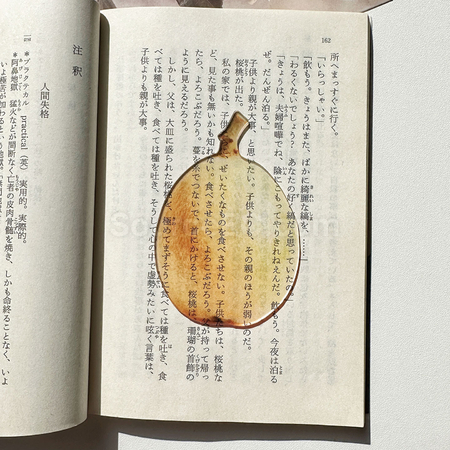 162
所へまっすぐに行く。
「いらっしゃい。」
「飲もう。きょうはまた、ばかに綺麗な縞を、……」
「わるくないでしょう？　あなたの好く縞だと思っていたの。」
「きょうは、夫婦喧嘩でね、陰にこもってやりきれねえんだ。飲もう。今夜は泊る
ぜ。だんぜん泊る。」
子供より親が大事、と思いたい。子供よりも、その親のほうが弱いのだ。
桜桃が出た。
私の家では、子供たちに、ぜいたくなものを食べさせない。子供たちは、桜桃な
ど、見た事も無いかも知れない。食べさせたら、よろこぶだろう。父が持って帰っ
たら、よろこぶだろう。蔓を糸でつないで、首にかけると、桜桃は、珊瑚の首飾の
ように見えるだろう。
しかし、父は、大皿に盛られた桜桃を、極めてまずそうに食べては種を吐き、食
べては種を吐き、食べては種を吐き、そうして心の中で虚勢みたいに呟く言葉は、
子供よりも親が大事。
注釈
人間失格
＊プラクテカル　practical（英）　実用的。実際的。
＊阿鼻地獄　猛火などが間断なく亡者の皮肉骨髄を焼き、しかも命終ることなく、いよ